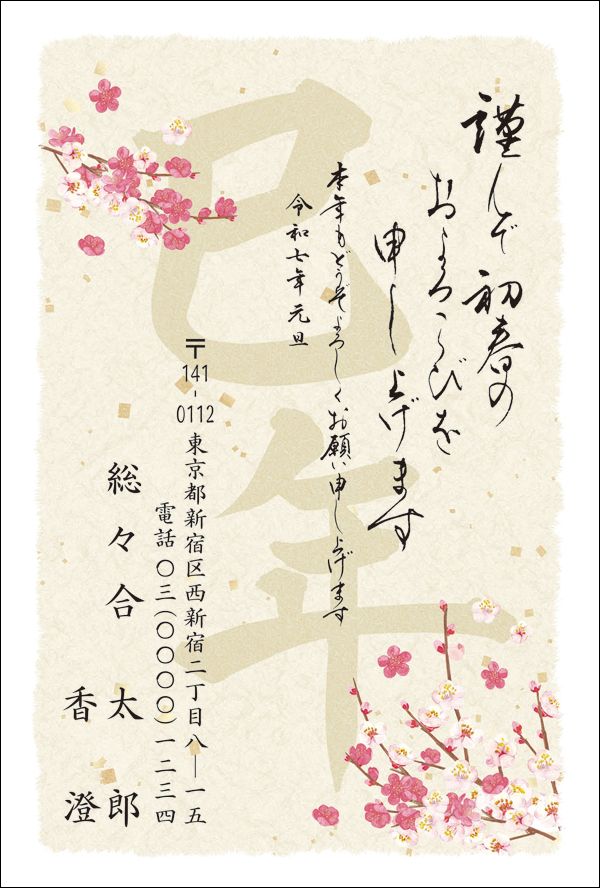 謹んで初春の
およろこびを
申し上げます
本年もどうぞよろしくお願い申し上げます
令和七年元旦
巳年
〒141-0112 東京都新宿区西新宿二丁目八―一五
電話 〇三(〇〇〇〇)一二三四
総々合 太郎
香澄